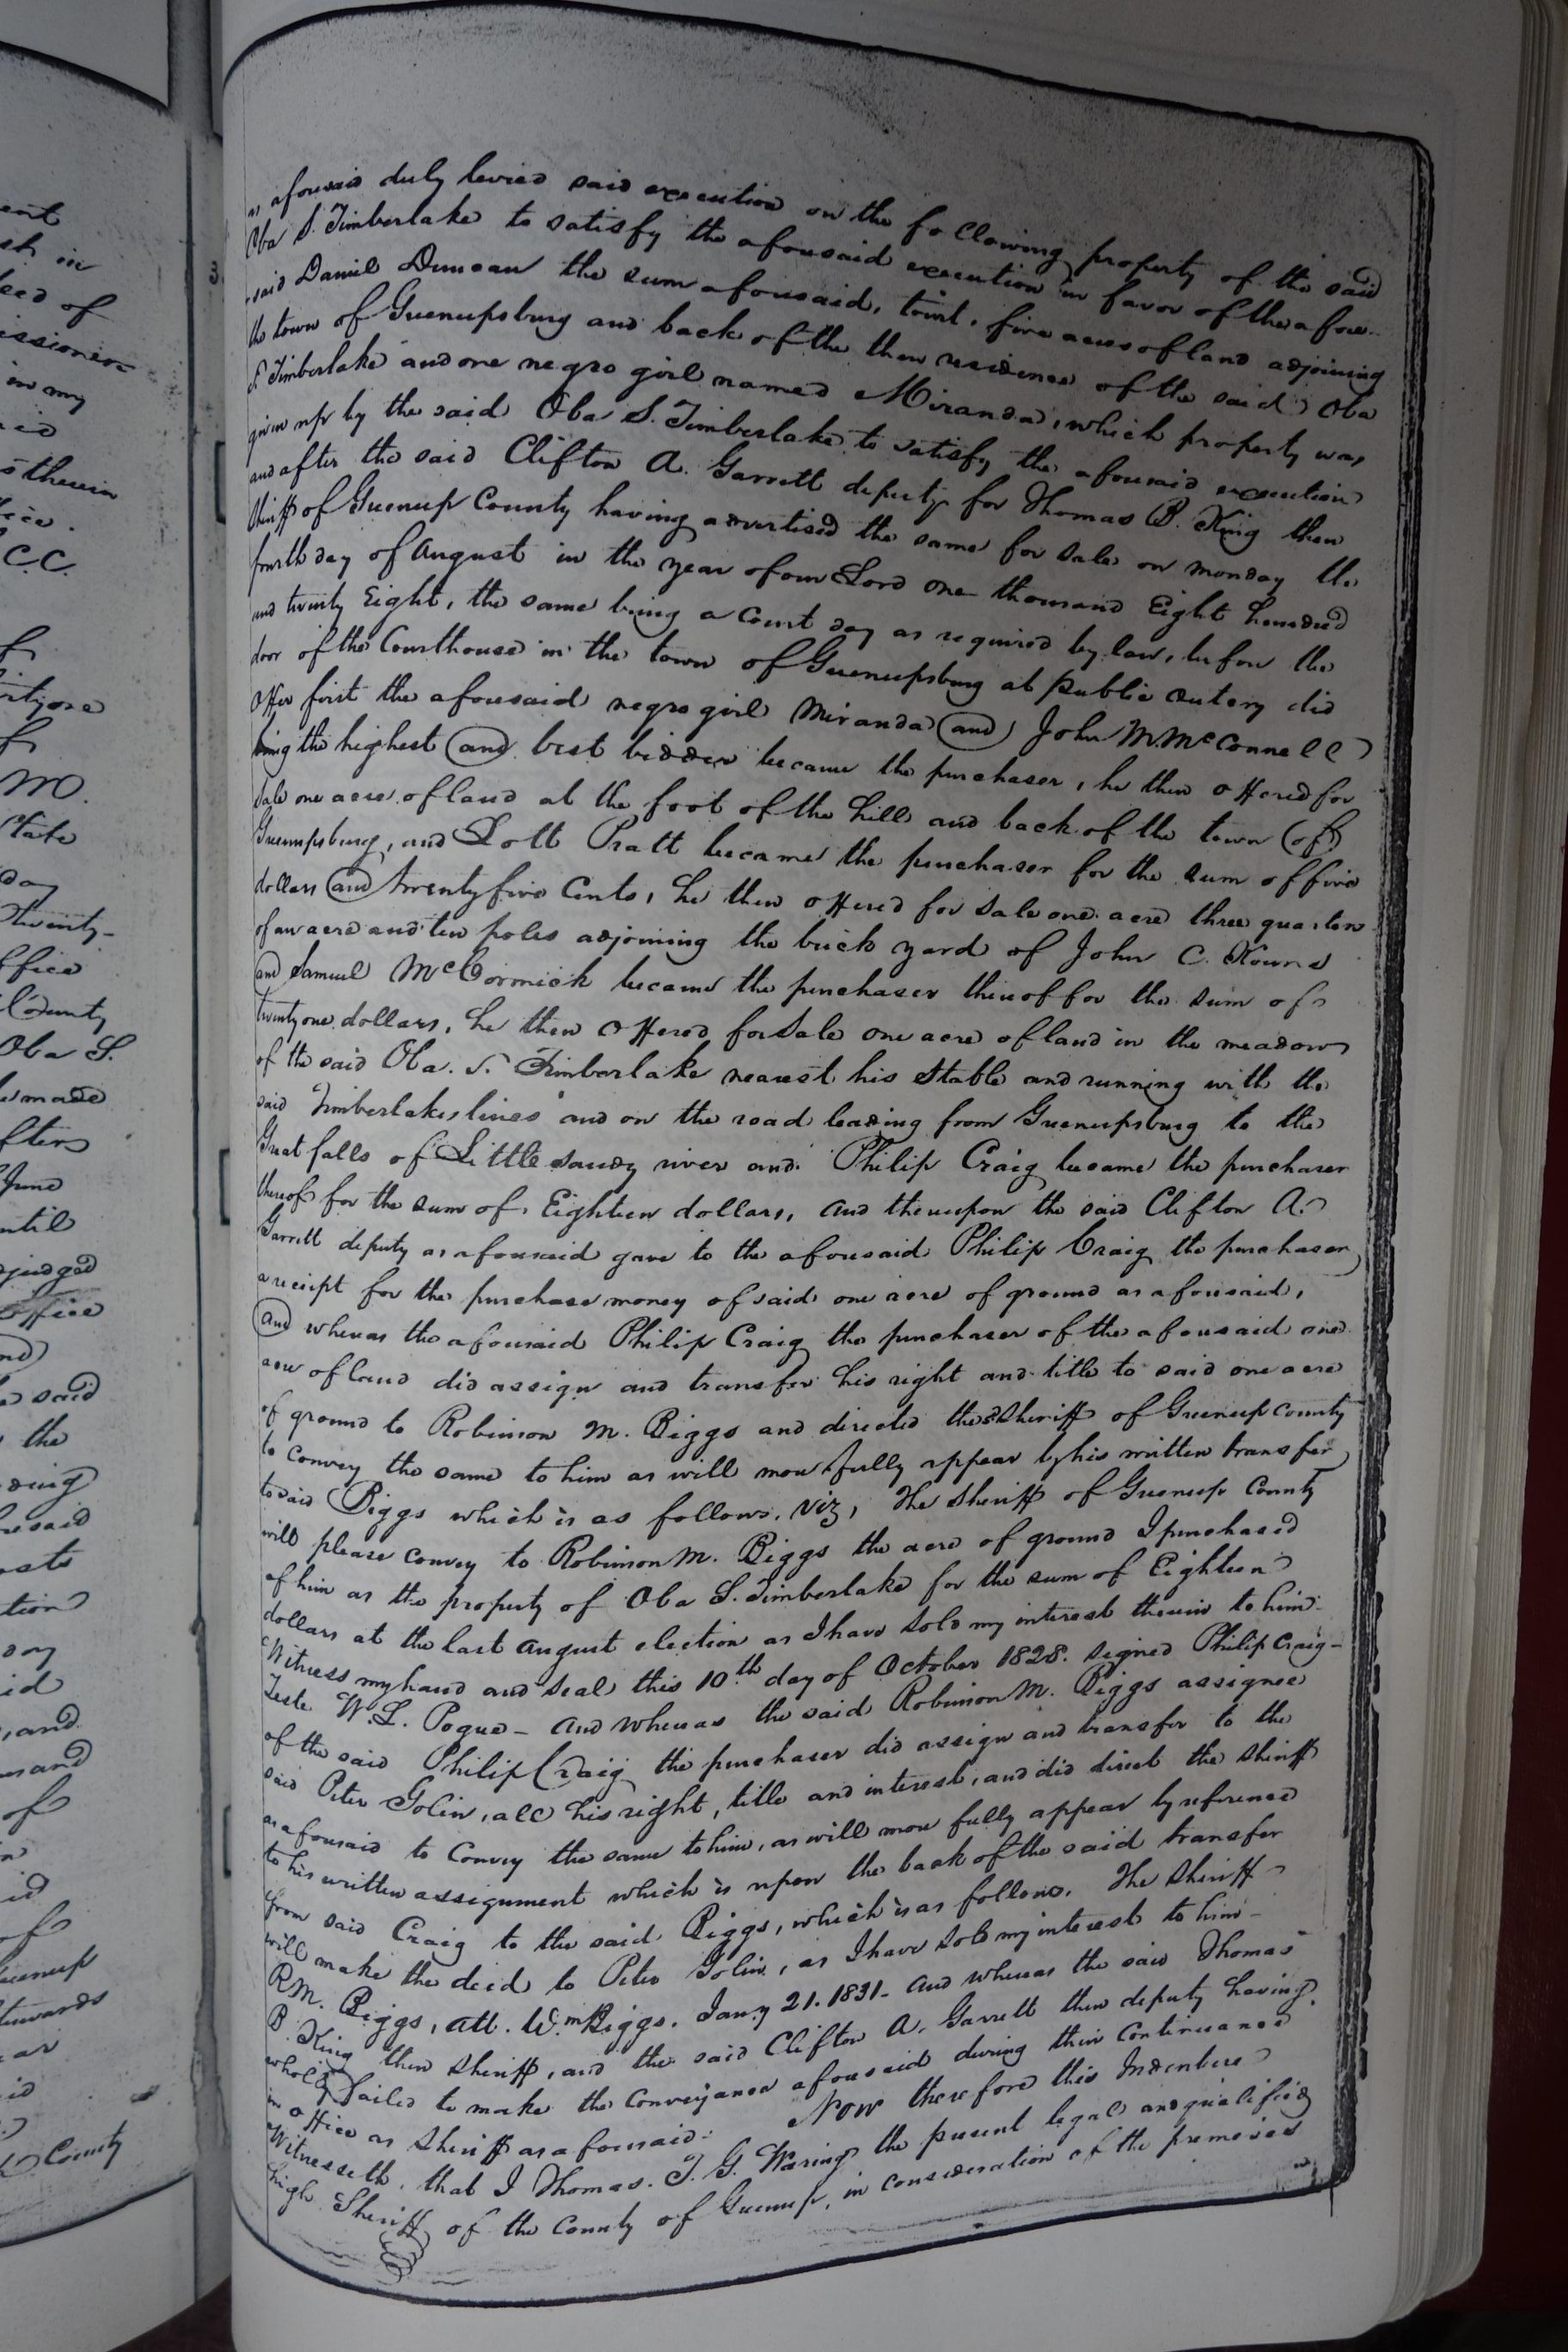 ent
sh in
eed of
issioner
in my
s therein
fice.
C.C.
of
M.
State
day
twenty-
ffice
County
Oba S.
made
fter
June
until
djudged
office
said
the
said
day
and
of
County
as aforesaid duly levied said execution on the following property of the said
Oba S. Timberlake to satisfy the aforesaid execution in favor of the afore-
said Daniel Duncan the sum aforesaid, towit, five acres of land adjoining
the town of Greenupsburg and back of the then residence of the said Oba
S Timberlake and one negro girl named Miranda, which property was
given up by the said Oba S. Timberlake to satisfy the aforesaid execution
and after the said Clifton A. Garrett deputy for Thomas B. King then
Sheriff of Greenup County having advertised the same for sale on monday the
fourth day of August in the year of our Lord one thousand Eight hundred
and twenty Eight, the same being a Court day as required by law, before the
door of the Courthouse in the town of Greenupsburg at Public Outcry did
offer first the aforesaid negro girl Miranda and John M. McConnell
being the highest and best bidder became the purchaser, he then offered for
sale one acre of land at the foot of the hill and back of the town of
Greenupsburg, and Lott Pratt became the purchaser for the sum of five
dollars and twenty five Cents, he then offered for sale one acre three quarters
of an acre and ten poles adjoining the brick yard of John C. Kouns
and Samuel McCormick became the purchaser thereof for the sum of
twenty one dollars, he then offered for Sale one acre of land in the meadow
of the said Oba. S. Timberlake nearest his Stable and running with the
said Timberlakes lines and on the road leading from Greenupsburg to the
Great falls of Little sandy river and Philip Craig became the purchaser
thereof for the sum of Eighteen dollars, and thereupon the said Clifton A.
Garrett deputy as aforesaid gave to the aforesaid Philip Craig the purchaser
a reciept for the purchase money of said one acre of ground as aforesaid,
and whereas the aforesaid Philip Craig the purchaser of the aforesaid one
acre of land did assign and transfer his right and title to said one acre
of ground to Robinson M. Biggs and directed the Sheriff of Greenup County
to Convey the same to him as will more fully appear by his written transfer
to said Biggs which is as follows. Viz, The Sheriff of Greenup County
will please convey to Robinson M. Biggs the acre of ground I purchased
of him as the property of Oba S. Timberlake for the sum of Eighteen
dollars at the last August election as I have sold my interest therein to him.
Witness my hand and seal this 10th day of October 1828. signed Philip Craig-
Teste W. L. Pogue - And whereas the said Robinson M. Biggs assignee
of the said Philip Craig the purchaser did assign and transfer to the
said Peter Golin, all his right, title and interest, and did direct the Sheriff
as aforesaid to Convey the same to him, as will more fully appear by reference
to his written assignment which is upon the back of the said transfer
from said Craig to the said Biggs, which is as follows. The Sheriff
will make the deed to Peter Golin, as I have Sold my interest to him-
R M. Biggs, att. Wm Biggs. Jany 21. 1831- and whereas the said Thomas
B. King then Sheriff, and the said Clifton A. Garrett then deputy having
wholly failed to make the Conveyance aforesaid during their Continuance
in office as Sheriff as aforesaid. Now therefore this Indenture
Witnesseth, that I Thomas. T. G. Waring the present legal and qualified
high Sheriff of the County of Greenup, in consideration of the premises